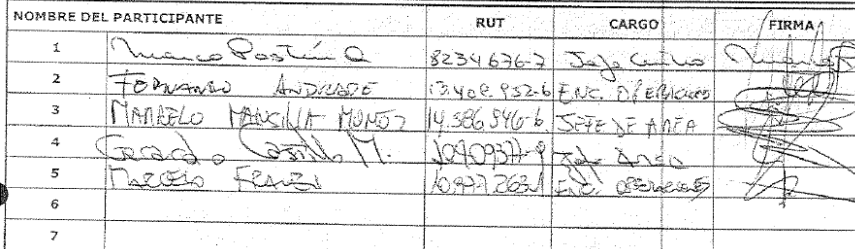 NOMBRE DEL PARTICIPANTE RUT CARGO FIRMA
1 8234676-7 Jefe
2 FERNANDO ANDRADE 13.408.952-6 ENC. OPERACIONES
3 MARCELO MANSILLA MUÑOZ 14.586.946-6 JEFE DE AREA
4 Gerardo Castillo M. Jefe Area
5 MARCELO ENC. OPERACIONES
6
7